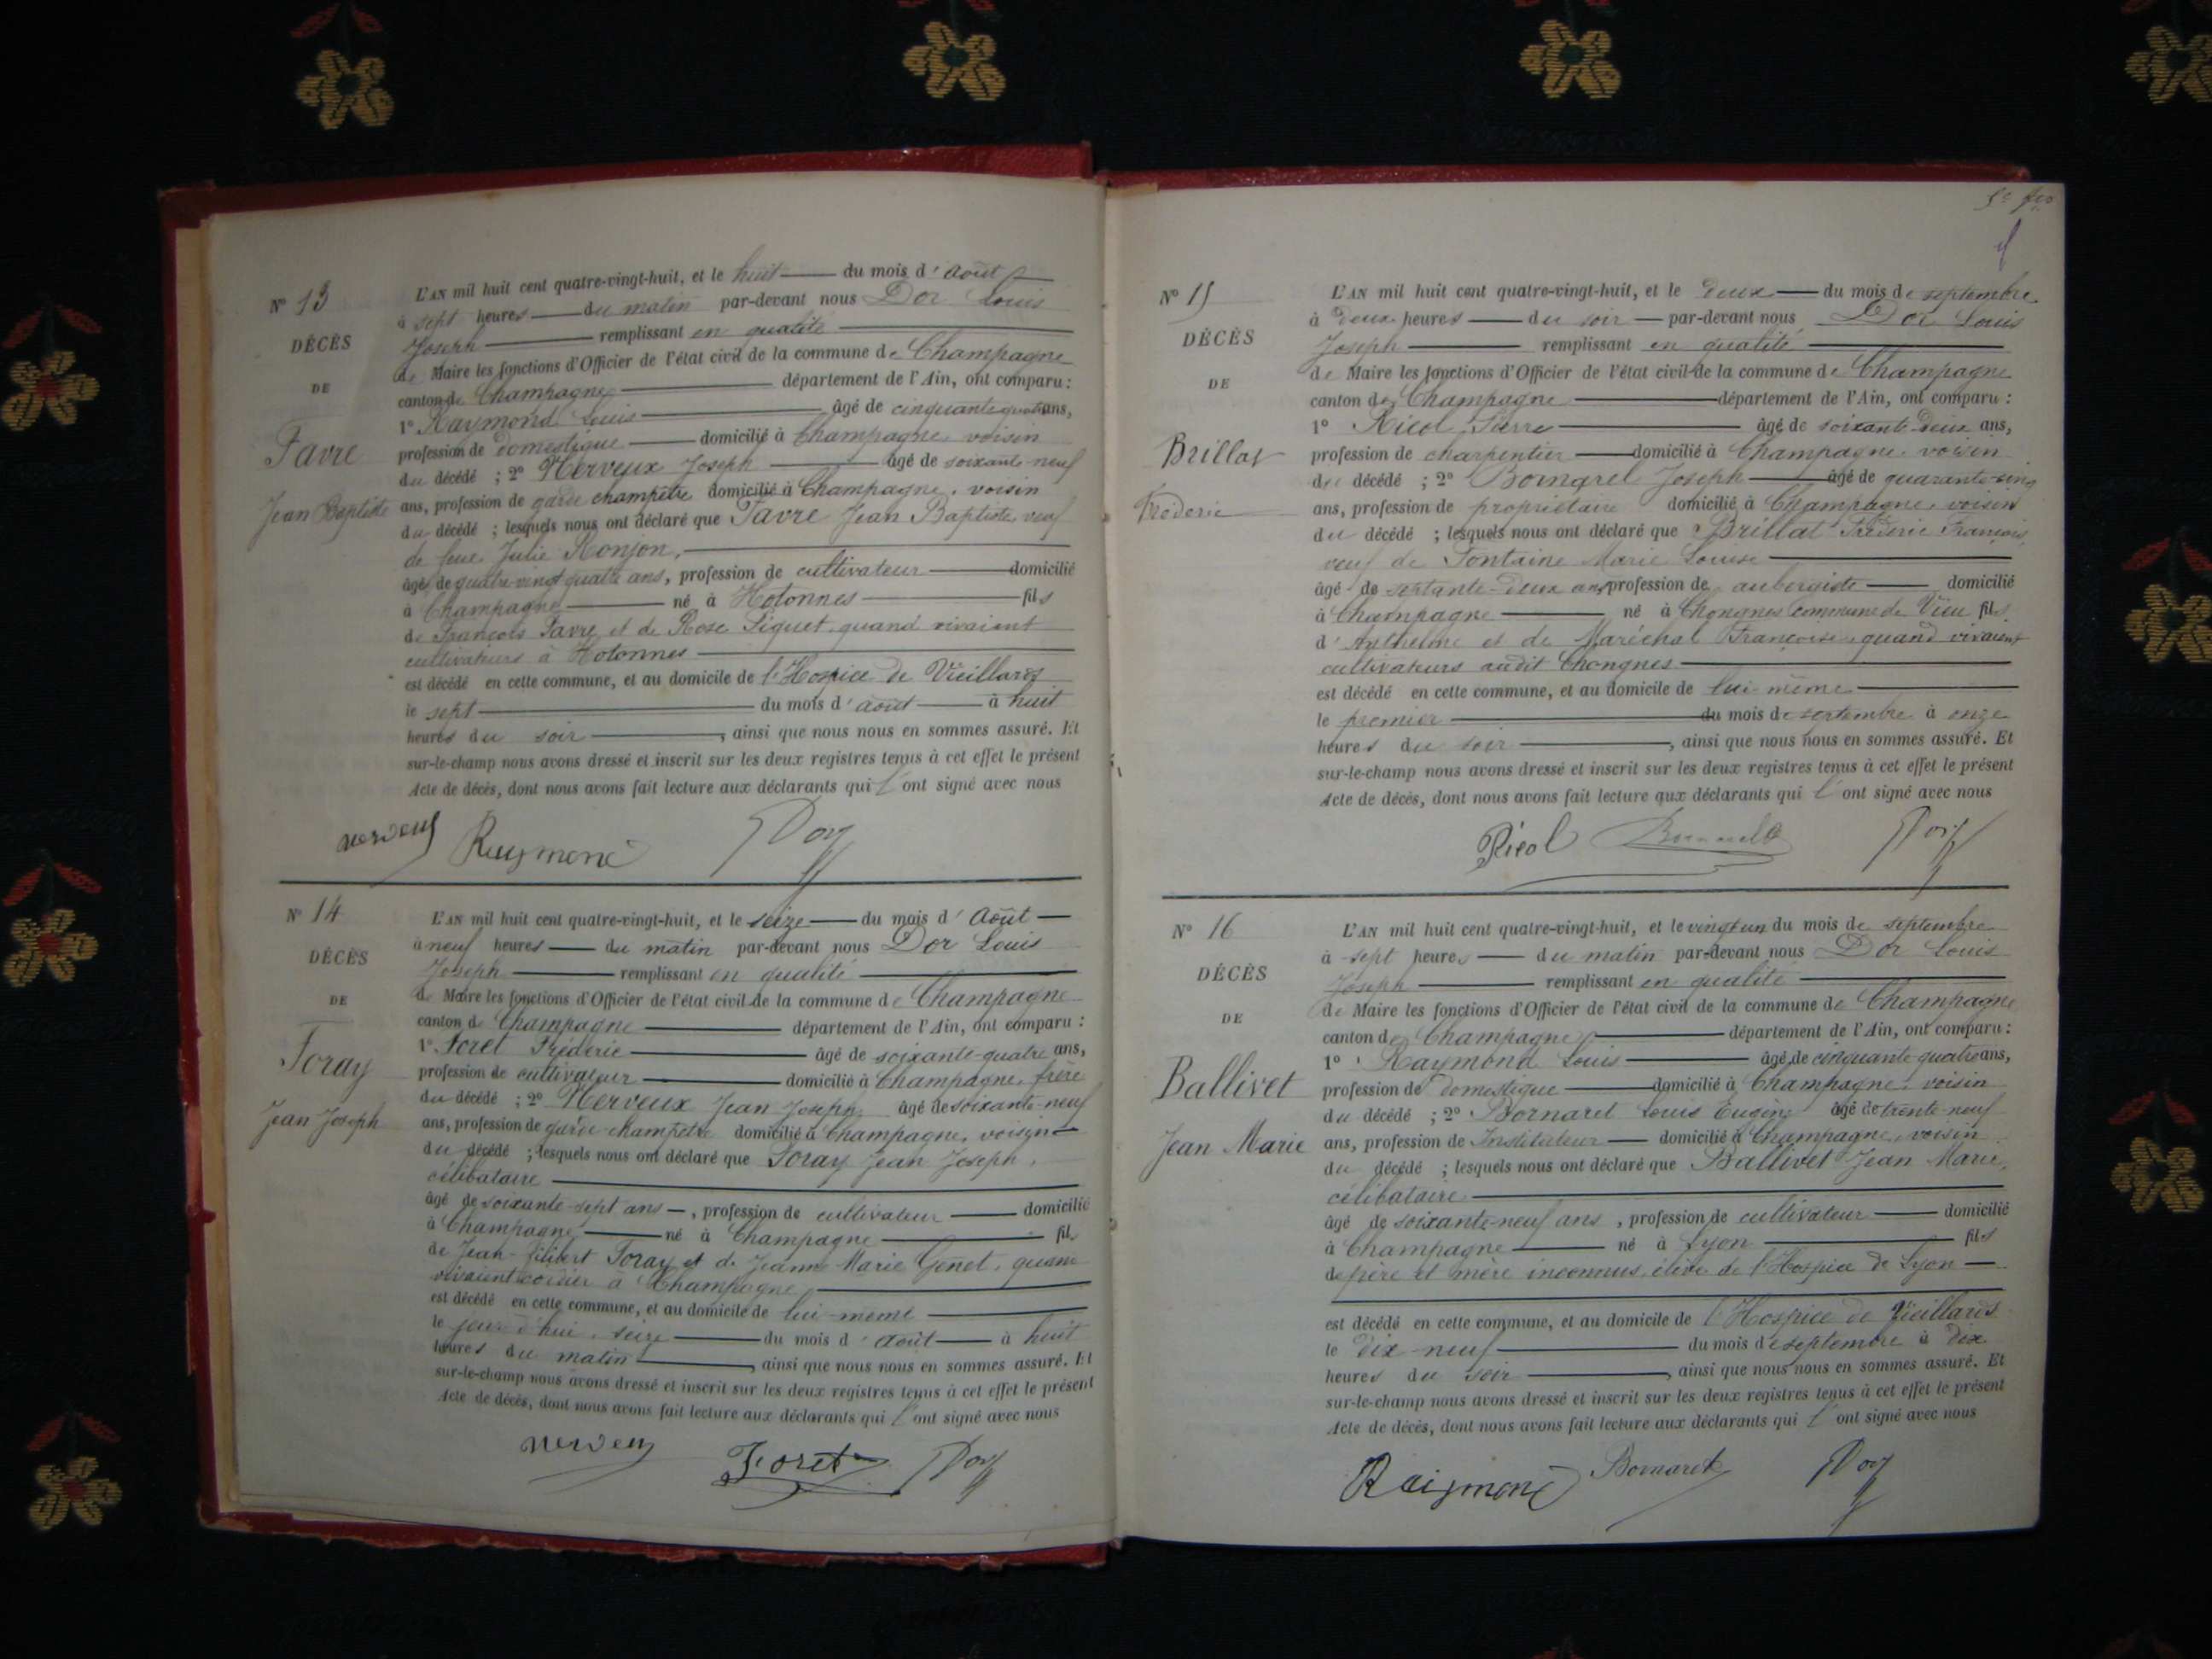 Nº 13
DÉCÈS
DE
Favre
Jean Baptiste
L'AN mil huit cent quatre-vingt-huit, et le huit du mois d'Août
à sept heures du matin par-devant nous Dor Louis
Joseph remplissant en qualité
de Maire les fonctions d'Officier de l'état civil de la commune de Champagne
canton de Champagne département de l'Ain, ont comparu :
1º Raymond Louis âgé de cinquante quatre ans,
profession de domestique domicilié à Champagne, voisin
du décédé ; 2º Nerveux Joseph âgé de soixante-neuf
ans, profession de garde champêtre domicilié à Champagne, voisin
du décédé ; lesquels nous ont déclaré que Favre Jean Baptiste, veuf
de feue Julie Ronjon,
âgé de quatre-vingt quatre ans, profession de cultivateur domicilié
à Champagne né à Hotonnes fils
de François Favre et de Rose Liquet, quand vivaient
cultivateurs à Hotonnes
est décédé en cette commune, et au domicile de l'Hospice de Vieillards
le sept du mois d'août à huit
heures du soir, ainsi que nous nous en sommes assuré. Et
sur-le-champ nous avons dressé et inscrit sur les deux registres tenus à cet effet le présent
Acte de décès, dont nous avons fait lecture aux déclarants qui l'ont signé avec nous
Raymond Dor
Nº 14
DÉCÈS
DE
Foray
Jean Joseph
L'AN mil huit cent quatre-vingt-huit, et le seize du mois d'Août
à neuf heures du matin par-devant nous Dor Louis
Joseph remplissant en qualité
de Maire les fonctions d'Officier de l'état civil de la commune de Champagne
canton de Champagne département de l'Ain, ont comparu :
1º Foret Fréderic âgé de soixante-quatre ans,
profession de cultivateur domicilié à Champagne, frère
du décédé ; 2º Nerveux Jean Joseph, âgé de soixante-neuf
ans, profession de garde champêtre domicilié à Champagne, voisin
du décédé ; lesquels nous ont déclaré que Foray Jean Joseph,
célibataire
âgé de soixante-sept ans, profession de cultivateur domicilié
à Champagne né à Champagne fils
de Jean-Filibert Foray et de Jeanne Marie Genet, quand
vivaient cordier à Champagne
est décédé en cette commune, et au domicile de lui-même
le jour d'hui, seize du mois d'août à huit
heures du matin, ainsi que nous nous en sommes assuré. Et
sur-le-champ nous avons dressé et inscrit sur les deux registres tenus à cet effet le présent
Acte de décès, dont nous avons fait lecture aux déclarants qui l'ont signé avec nous
Foret Dor
Nº 15
DÉCÈS
DE
Brillat
Fréderic
L'AN mil huit cent quatre-vingt-huit, et le deux du mois de septembre
à deux heures du soir par-devant nous Dor Louis
Joseph remplissant en qualité
de Maire les fonctions d'Officier de l'état civil de la commune de Champagne
canton de Champagne département de l'Ain, ont comparu :
1º Ricol Pierre âgé de soixante-deux ans,
profession de charpentier domicilié à Champagne, voisin
du décédé ; 2º Bornarel Joseph âgé de quarante-cinq
ans, profession de propriétaire domicilié à Champagne, voisin
du décédé ; lesquels nous ont déclaré que Brillat Fréderic François,
veuf de Fontaine Marie Louise
âgé de septante-deux ans, profession de aubergiste domicilié
à Champagne né à Chongnes commune de Vieu fils
d'Anthelme et de Maréchal Françoise, quand vivaient
cultivateurs audit Chongnes
est décédé en cette commune, et au domicile de lui-même
le premier du mois de septembre à onze
heures du soir, ainsi que nous nous en sommes assuré. Et
sur-le-champ nous avons dressé et inscrit sur les deux registres tenus à cet effet le présent
Acte de décès, dont nous avons fait lecture aux déclarants qui l'ont signé avec nous
Ricol Dor
Nº 16
DÉCÈS
DE
Ballivet
Jean Marie
L'AN mil huit cent quatre-vingt-huit, et le vingt un du mois de septembre
à sept heures du matin par-devant nous Dor Louis
Joseph remplissant en qualité
de Maire les fonctions d'Officier de l'état civil de la commune de Champagne
canton de Champagne département de l'Ain, ont comparu :
1º Raymond Louis âgé de cinquante-quatre ans,
profession de domestique domicilié à Champagne, voisin
du décédé ; 2º Bornarel Louis Eugène âgé de trente-neuf
ans, profession de Instituteur domicilié à Champagne, voisin
du décédé ; lesquels nous ont déclaré que Ballivet Jean Marie,
célibataire
âgé de soixante-neuf ans, profession de cultivateur domicilié
à Champagne né à Lyon fils
de père et mère inconnus, élève de l'Hospice de Lyon
est décédé en cette commune, et au domicile de l'Hospice de Vieillards
le dix-neuf du mois de septembre à dix
heures du soir, ainsi que nous nous en sommes assuré. Et
sur-le-champ nous avons dressé et inscrit sur les deux registres tenus à cet effet le présent
Acte de décès, dont nous avons fait lecture aux déclarants qui l'ont signé avec nous
Raymond Bornarel Dor